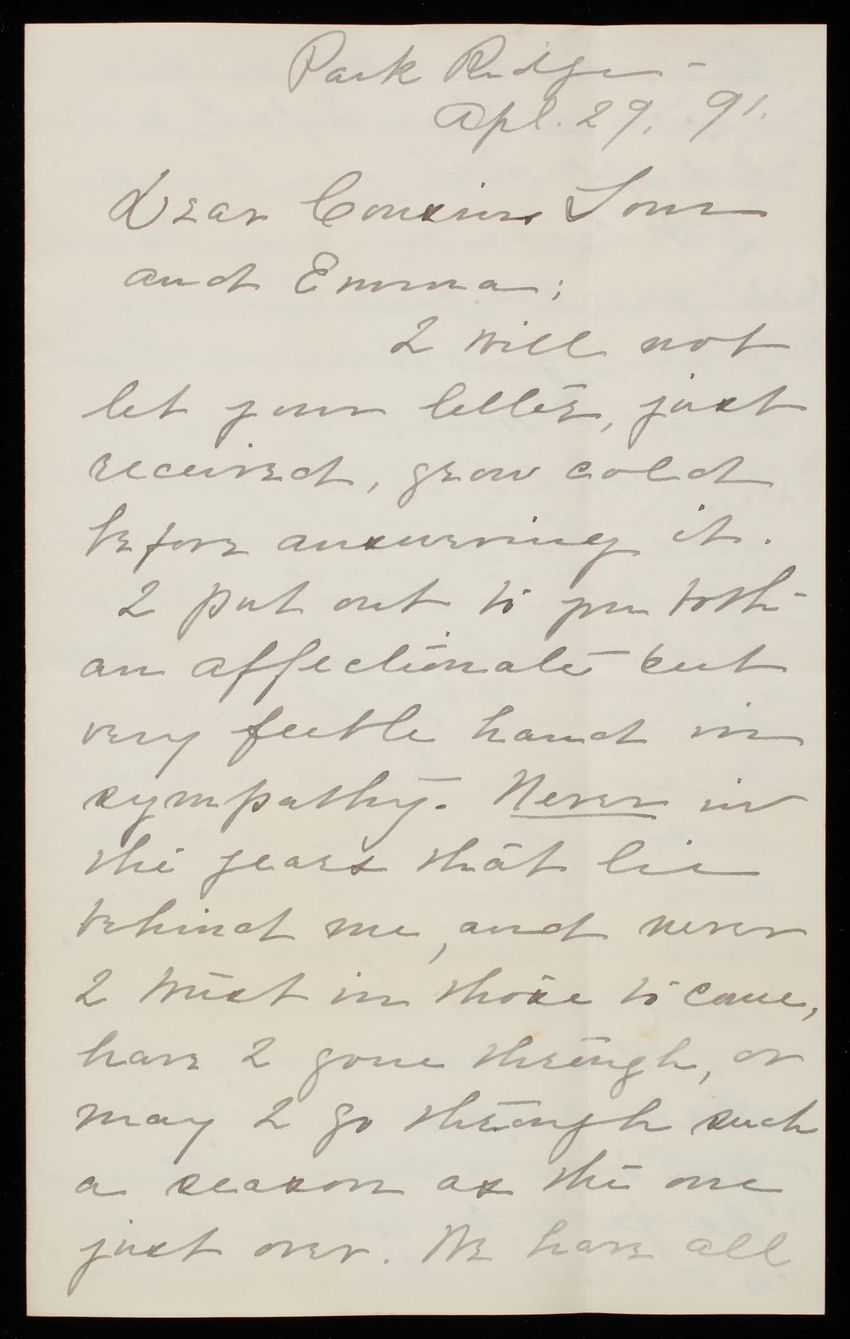 Park Ridge -
Apl. 29, 91.
Dear Cousins Tom
and Emma;
I will not
let your letter, just
received, grow cold
before answering it.
I put out to you both -
an affectionate but
very feeble hand in
sympathy. Never in
the years that lie
behind me, and never
I trust in those to come,
have I gone through, or
may I go through such
a season as the one
just over. We have all